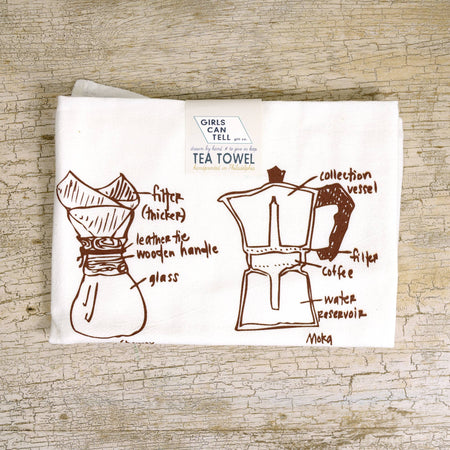 GIRLS
CAN
TELL
drawn by hand & to you in kind
TEA TOWEL
handprinted in Philadelphia
filter
(thicker)
leather tie
wooden handle
glass
Chemex
collection
vessel
filter
coffee
water
reservoir
Moka